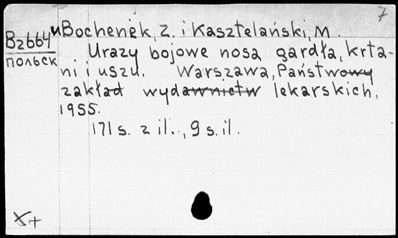 7
Bz664
польск
и Bochenek, Z. i Kasztelański, M.
Urazy bojowe nosa gardła, krta-
ni i uszu. Warszawa, Państwowy
zakład wydawnictw lekarskich.
1955.
171 s. z il., 9 s. il.
X+